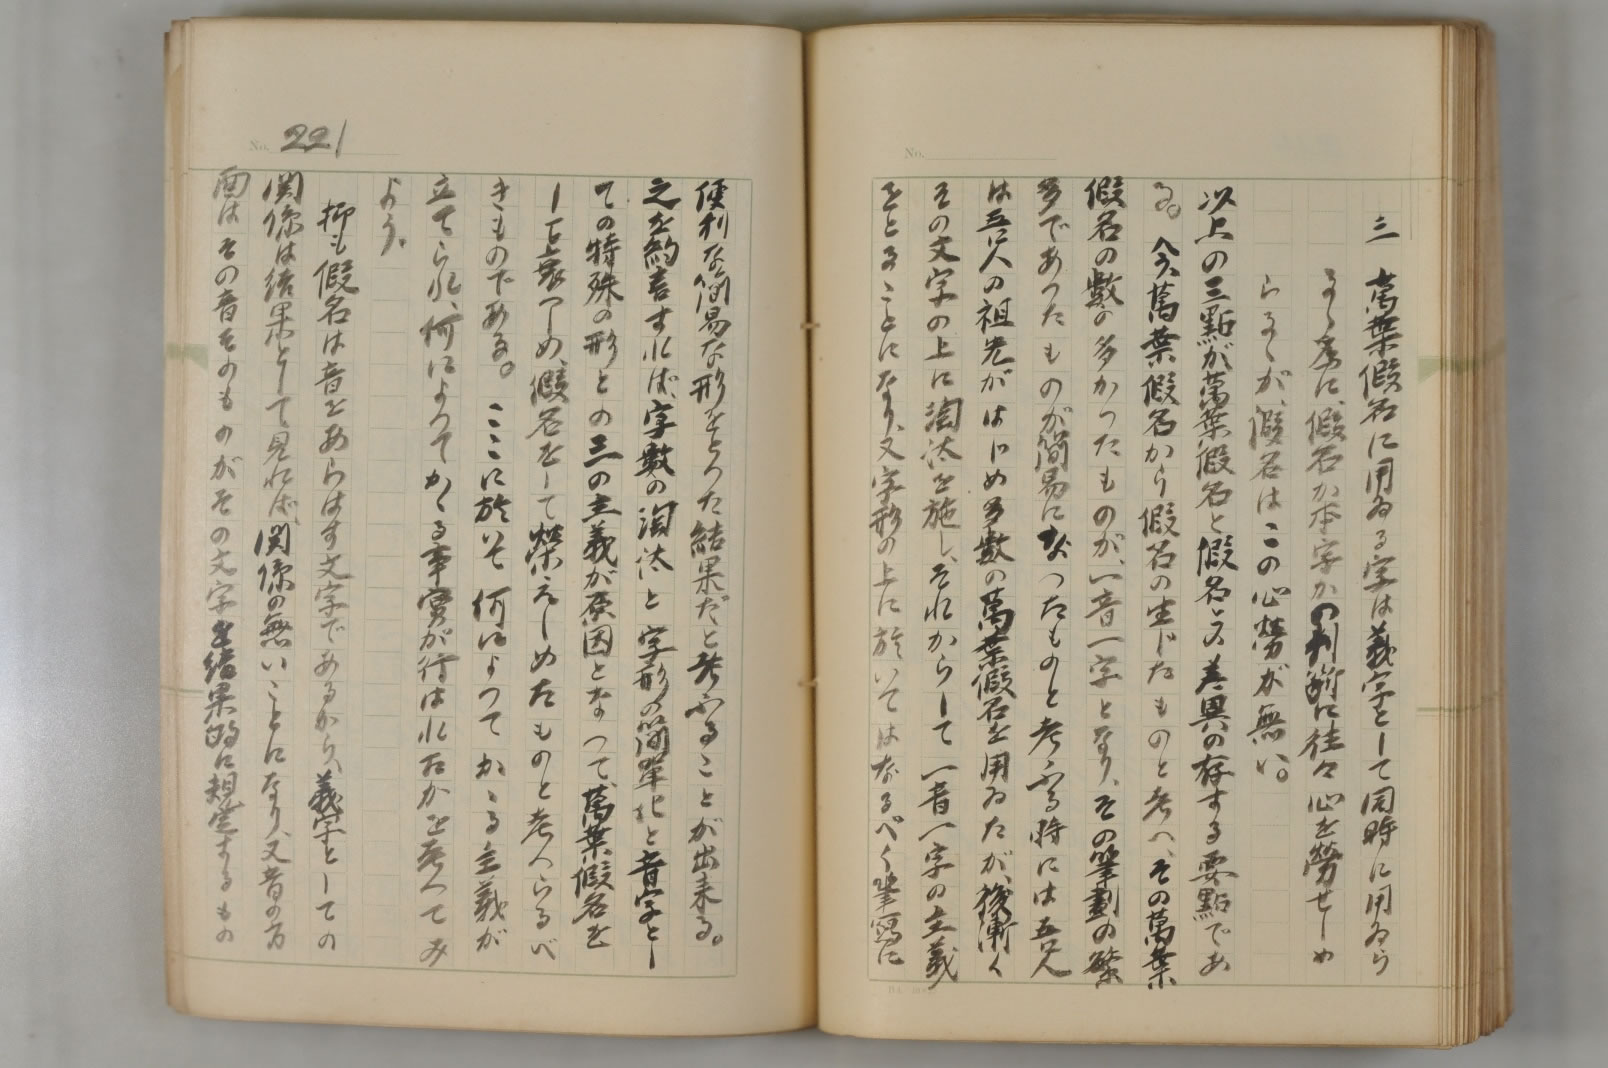 三 萬葉假名に用ゐる字は義字として同時に用ゐら
るゝ爲に、假名か本字かの判斷に往々心を勞せしめ
らるゝが、假名はこの心勞が無い。
以上の三點が萬葉假名と假名との差異の存する要點であ
る。今、萬葉假名から假名の生じたものと考へ、その萬葉
假名の數の多かつたものが、一音一字となり、その筆劃の繁
多であつたものが簡易になつたものと考ふる時には吾人
は吾人の祖先がはじめ多數の萬葉假名を用ゐたが、後漸く
その文字の上に淘汰を施し、それからして一音一字の主義
をとることになり、又字形の上に於いてはなるべく筆寫に
No. 221
便利な簡易な形をとつた結果だと考ふることが出來る。
之を約言すれば、字數の淘汰と字形の簡單化と音字とし
ての特殊の形との三の主義が原因となつて、萬葉假名を
して衰へしめ、假名をして榮えしめたものと考へらるべ
きものである。ここに於いて何によつてかゝる主義が
立てられ、何によつてかゝる事實が行はれたかを考へてみ
よう。
抑も假名は音をあらはす文字であるから、義字としての
關係は結果として見れば、關係の無いことになり、又音の方
面はその音そのものがその文字を結果的に規定するもの
No.